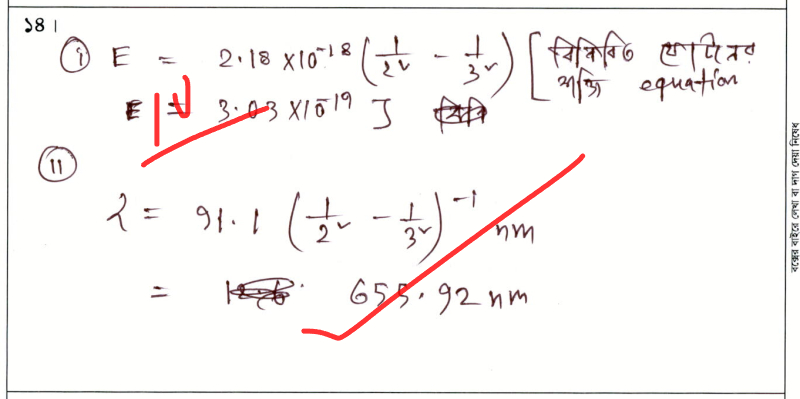 ১৪।
(i) E = 2.18 × 10⁻¹⁸ (1/2² - 1/3²) [বিকিরিত ফোটনের
শক্তি equation
E = 3.03 × 10⁻¹⁹ J
(ii)
λ = 91.1 (1/2² - 1/3²)⁻¹ nm
= 655.92 nm
বক্সের বাইরে লেখা বা দাগ দেয়া নিষেধ